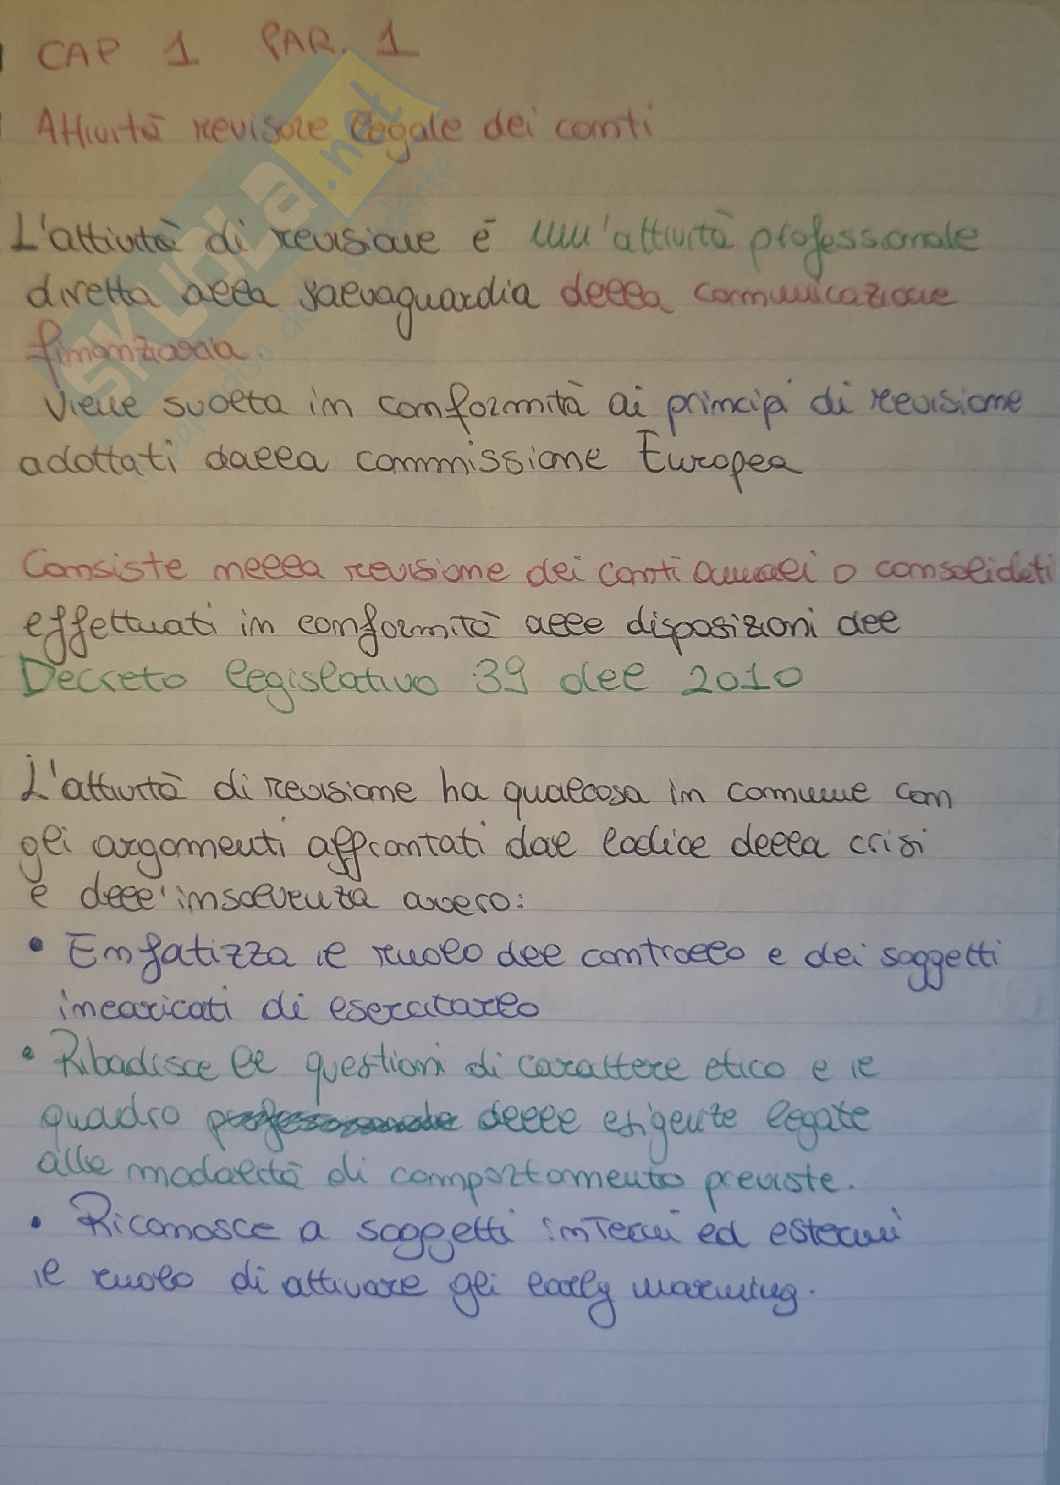 CAP 1 PAR. 1
Attività revisore legale dei conti
L'attività di revisione è un'attività professionale
diretta alla salvaguardia della comunicazione
finanziaria.
Viene svolta in conformità ai principi di revisione
adottati dalla commissione Europea
Consiste nella revisione dei conti annuali o consolidati
effettuati in conformità alle disposizioni del
Decreto legislativo 39 del 2010
L'attività di revisione ha qualcosa in comune con
gli argomenti affrontati dal codice della crisi
e dell'insolvenza ovvero:
• Enfatizza il ruolo del controllo e dei soggetti
incaricati di esercitarlo
• Ribadisce le questioni di carattere etico e il
quadro delle esigenze legate
alle modalità di comportamento previste.
• Riconosce a soggetti interni ed esterni
il ruolo di attivare gli early warning.
SKUOLA.net